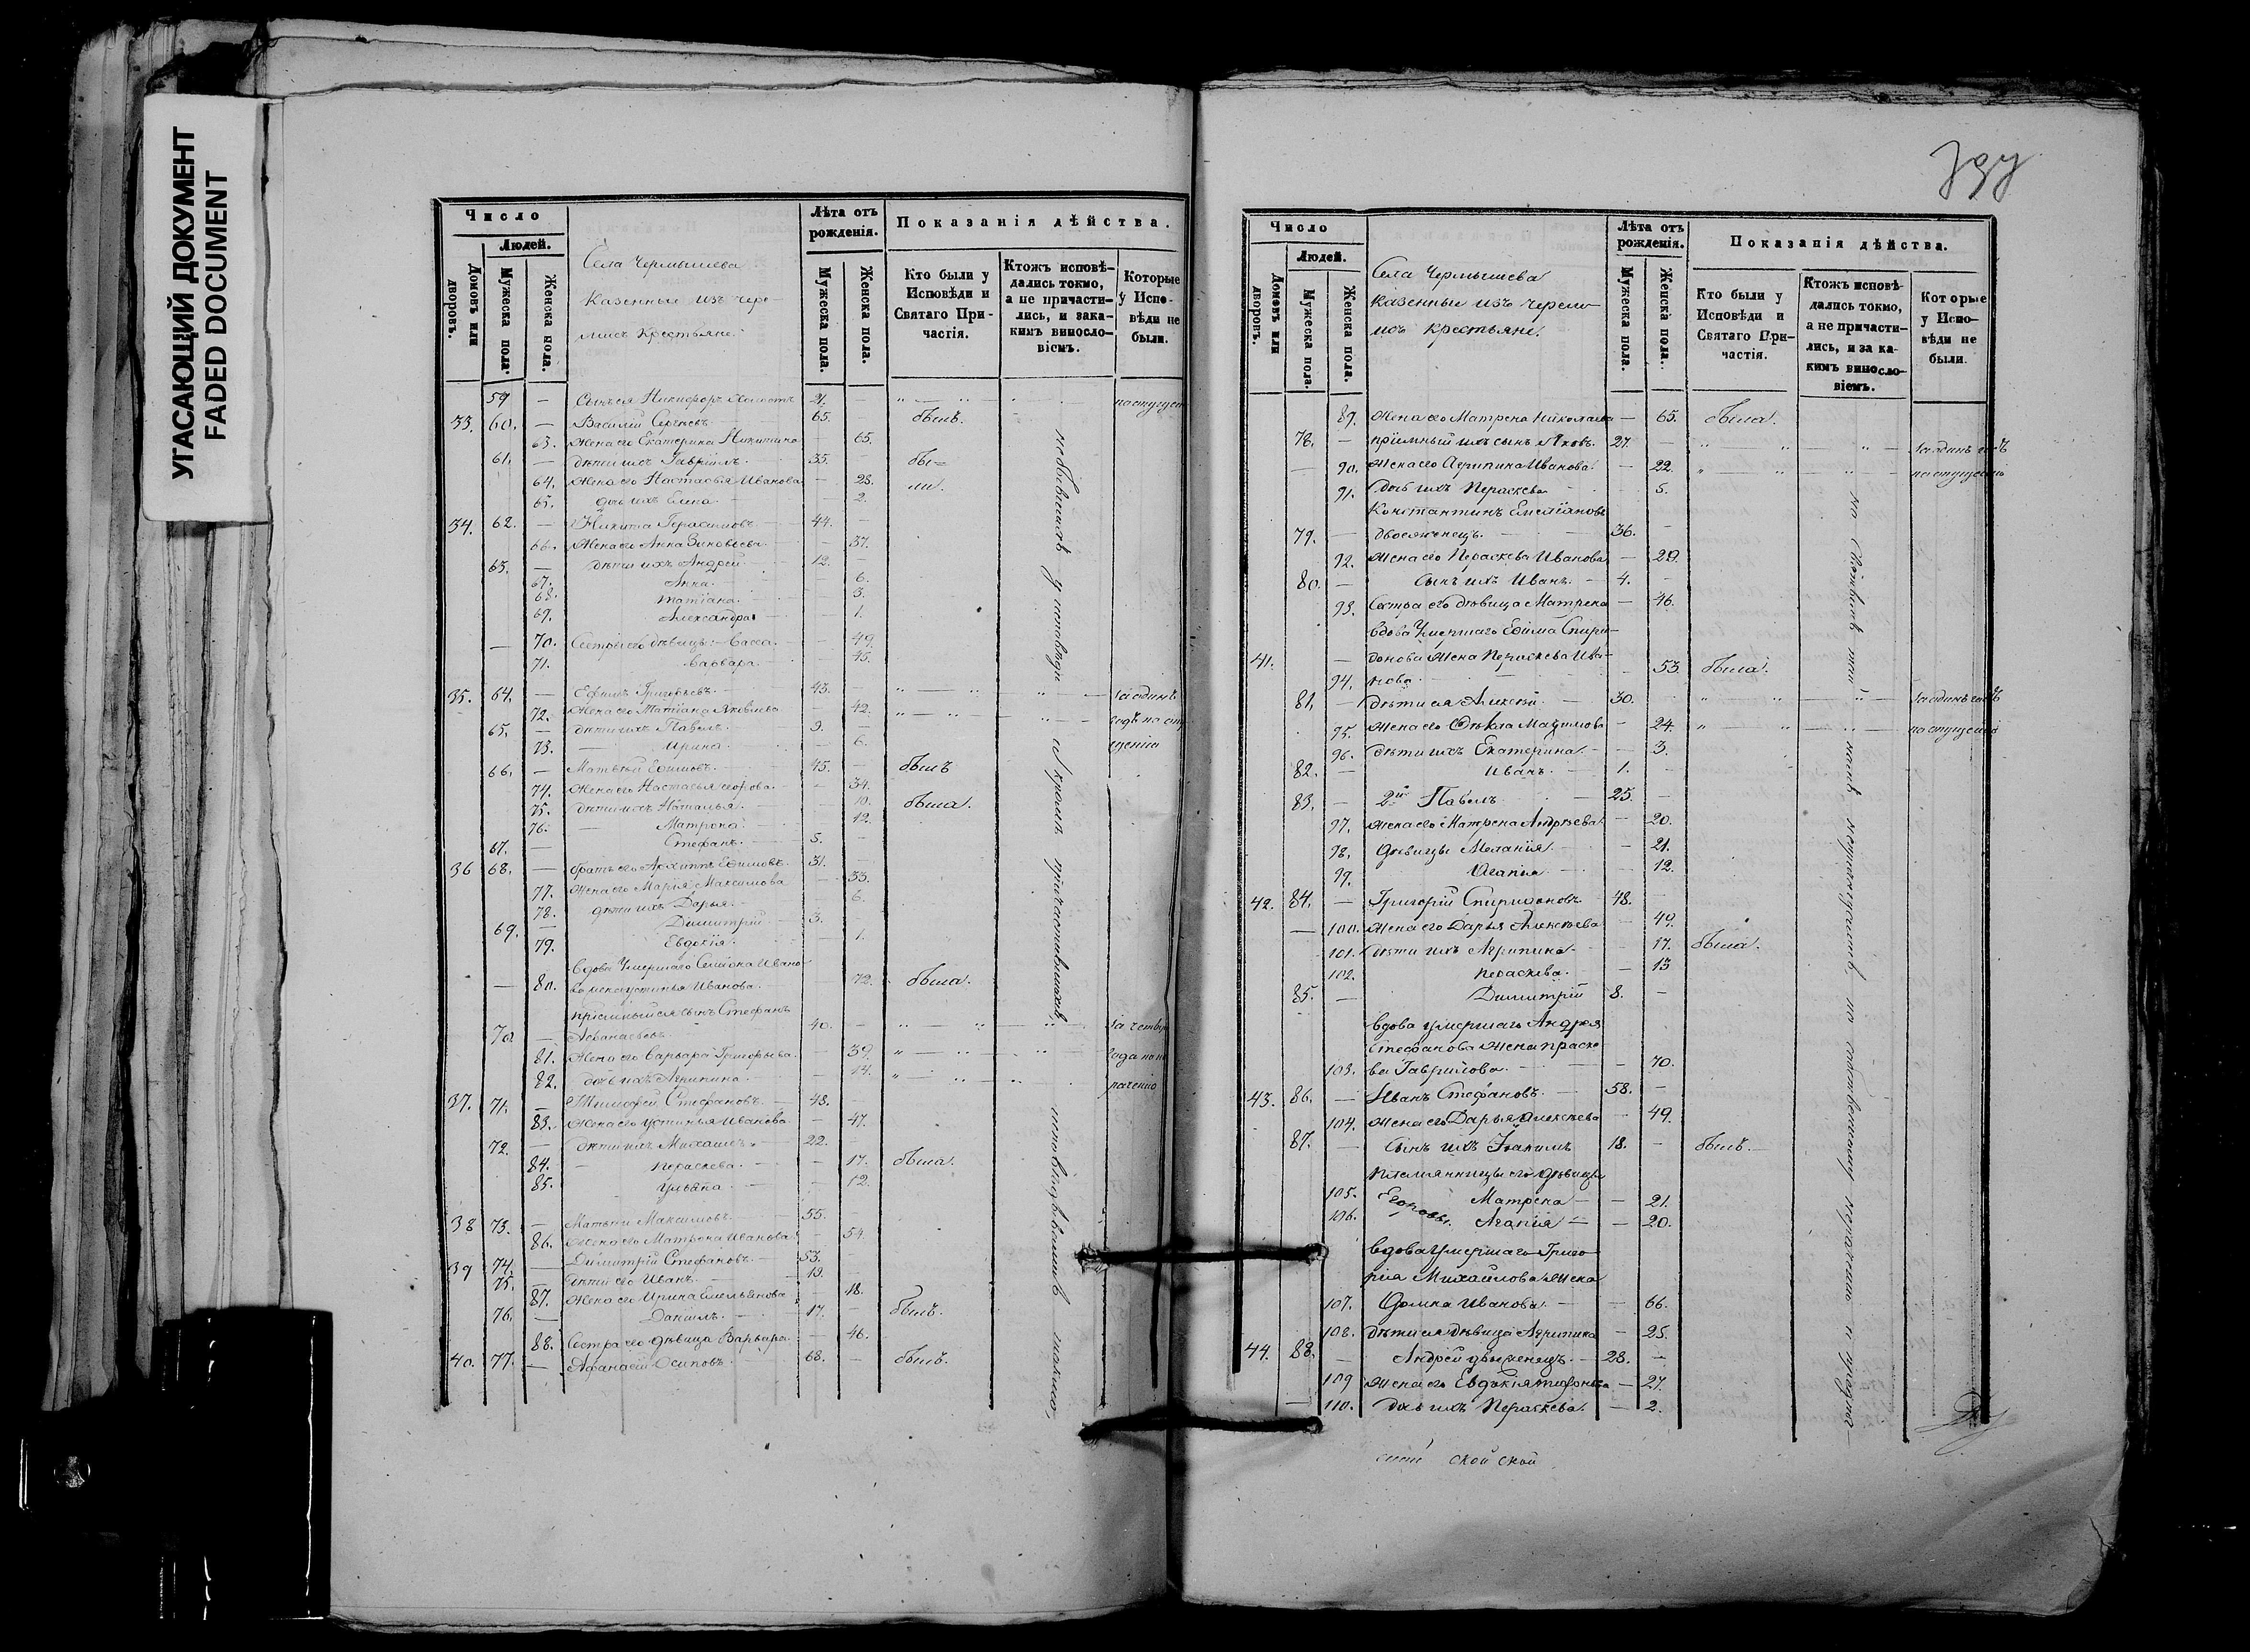 УГАСАЮЩИЙ ДОКУМЕНТ
FADED DOCUMENT
Число
Людей.
Домовъ или дворовъ.
Мужеска пола.
Женска пола.
Села Чермышева
Казенные изъ чере-
мисъ крестьяне.
Лѣта отъ рожденія.
Мужеска пола.
Женска пола.
Показанія дѣйства.
Кто были у Исповѣди и Святаго При-частія.
Ктожъ исповѣ-дались токмо, а не причасти-лись, и зака-кимъ винословіемъ.
Которые у Испо-вѣди не были.
59 — Сынъ ея Никифоръ холостъ 21. —
33. 60. — Василій Сергѣевъ 65. былъ.
63. Жена его Екатерина Никитина — 65.
61. — дѣти ихъ Гавріилъ 35. бы-
64. Жена его Настасья Иванова — 25. ли.
65. дочь ихъ Елена — 2.
34. 62. — Никита Герасимовъ 44. —
66. Жена его Анна Зиновьева — 37.
63. — дѣти ихъ Андрей 12. —
67. Анна. 6.
68. Татіана. 3.
69. Александра 1.
— 70. Сестры его дѣвицы: Васса. — 49.
71. Варвара. 45.
35. 64. — Ефимъ Григорьевъ 43. — за одинъ
72. Жена его Татіана Яковлева — 42. годъ по опу
65. — дѣти ихъ Павелъ 9. — щенію
73. — Ирина. — 6.
66. — Матвѣй Ефимовъ. 45. — былъ
74. Жена его Настасья Егорова. — 34.
75. дѣти ихъ Наталья. 10. была.
76. — Матрона. 12.
67. — Стефанъ. 5. —
36 68. — братъ его Архиппъ Ефимовъ. 31. —
77. Жена его Марья Максимова 33.
78. дѣти ихъ Дарья. 6.
69. — Димитрій 3.
79. Евдокія. 1.
вдова Умершаго Семіона Ивано
— 80. ва жена Устинья Иванова. 72. была.
пріимный ея сынъ Стефанъ
70 — Аѳанасьевъ. 40. —
81. Жена его Варвара Григорьева. — 39.
82. дочь ихъ Агрипина. — 14.
37. 71. — Тимофей Стефановъ. 48. —
83. Жена его Устинья Иванова — 47.
72. — дѣти ихъ Михаилъ 22. —
84. — Пераскева. — 17. была.
85. Ульяна. — 12.
38 73. — Матвѣй Максимовъ 55. —
86. Жена его Матрона Иванова — 54.
39 74. — Димитрій Стефановъ. 53. —
75. — дѣти его Иванъ. 19. —
87. Жена его Ирина Емельянова — 18.
76. — Даніилъ. 17. — былъ.
88. Сестра его дѣвица Варвара. — 46.
40. 77. — Афанасій Осиповъ. 68. — былъ.
Число
Людей.
Домовъ или дворовъ.
Мужеска пола.
Женска пола.
Села Чермышева
казенные изъ череми-
исъ крестьяне.
Лѣта отъ рожденія.
Мужеска пола.
Женска пола.
Показанія дѣйства.
Кто были у Исповѣди и Святаго При-частія.
Ктожъ исповѣ-дались токмо, а не причасти-лись, и за ка-кимъ винословіемъ.
Которые у Испо-вѣди не были.
89. Жена его Матрена Николаева — 65. была.
78. — пріимный ихъ сынъ Яковъ. 27. — за одинъ годъ
— 90. Жена его Агрипина Иванова. — 22. по опущенію
91. дочь ихъ Пераскева 5.
Константинъ Емеліяновъ
79. — двоеженецъ. 36. —
92. Жена его Пераскева Иванова — 29.
80. — Сынъ ихъ Иванъ. 4. —
93. Сестра его дѣвица Матрена — 46.
вдова Умершаго Ефима Спири-
41. — донова жена Пераскева Ива-
94. нова 53. была.
81. — дѣти ея Алексѣй 30. за одинъ годъ
95. Жена его Ѳекла Максимова — 24. по опущенію
96. дѣти ихъ Екатерина. — 3.
82. — Иванъ. 1. —
83. — 2й Павелъ 25. —
97. Жена его Матрена Андрѣева. — 20.
98. дѣвицы Меланія. — 21.
99. Агапія 12.
42. 84. — Григорій Спиридоновъ 48. —
— 100. Жена его Дарья Алексѣева — 49.
101. дѣти ихъ Агрипина 17. была.
102. Пераскева. — 13
85. — Димитрій 8. —
вдова умершаго Андрея
Стефанова жена праске
103. ва Гаврилова. — 70.
43. 86. — Иванъ Стефановъ. 58. —
104. Жена его Дарья Алексѣева — 49.
87. — Сынъ ихъ Іоакимъ 18. — былъ.
племянницы его дѣвицы
105. Егоровы. Матрена — 21.
106. Агапія — 20.
вдова Умершаго Григо
рія Михайлова жена
107. Домна Иванова. — 66.
108. дѣти ея дѣвица Агрипина — 25.
44. 88. — Андрей двоженецъ. 28. —
109 Жена его Евдокія — 27.
— 110. дочь ихъ Пераскева. — 2.
ской ской